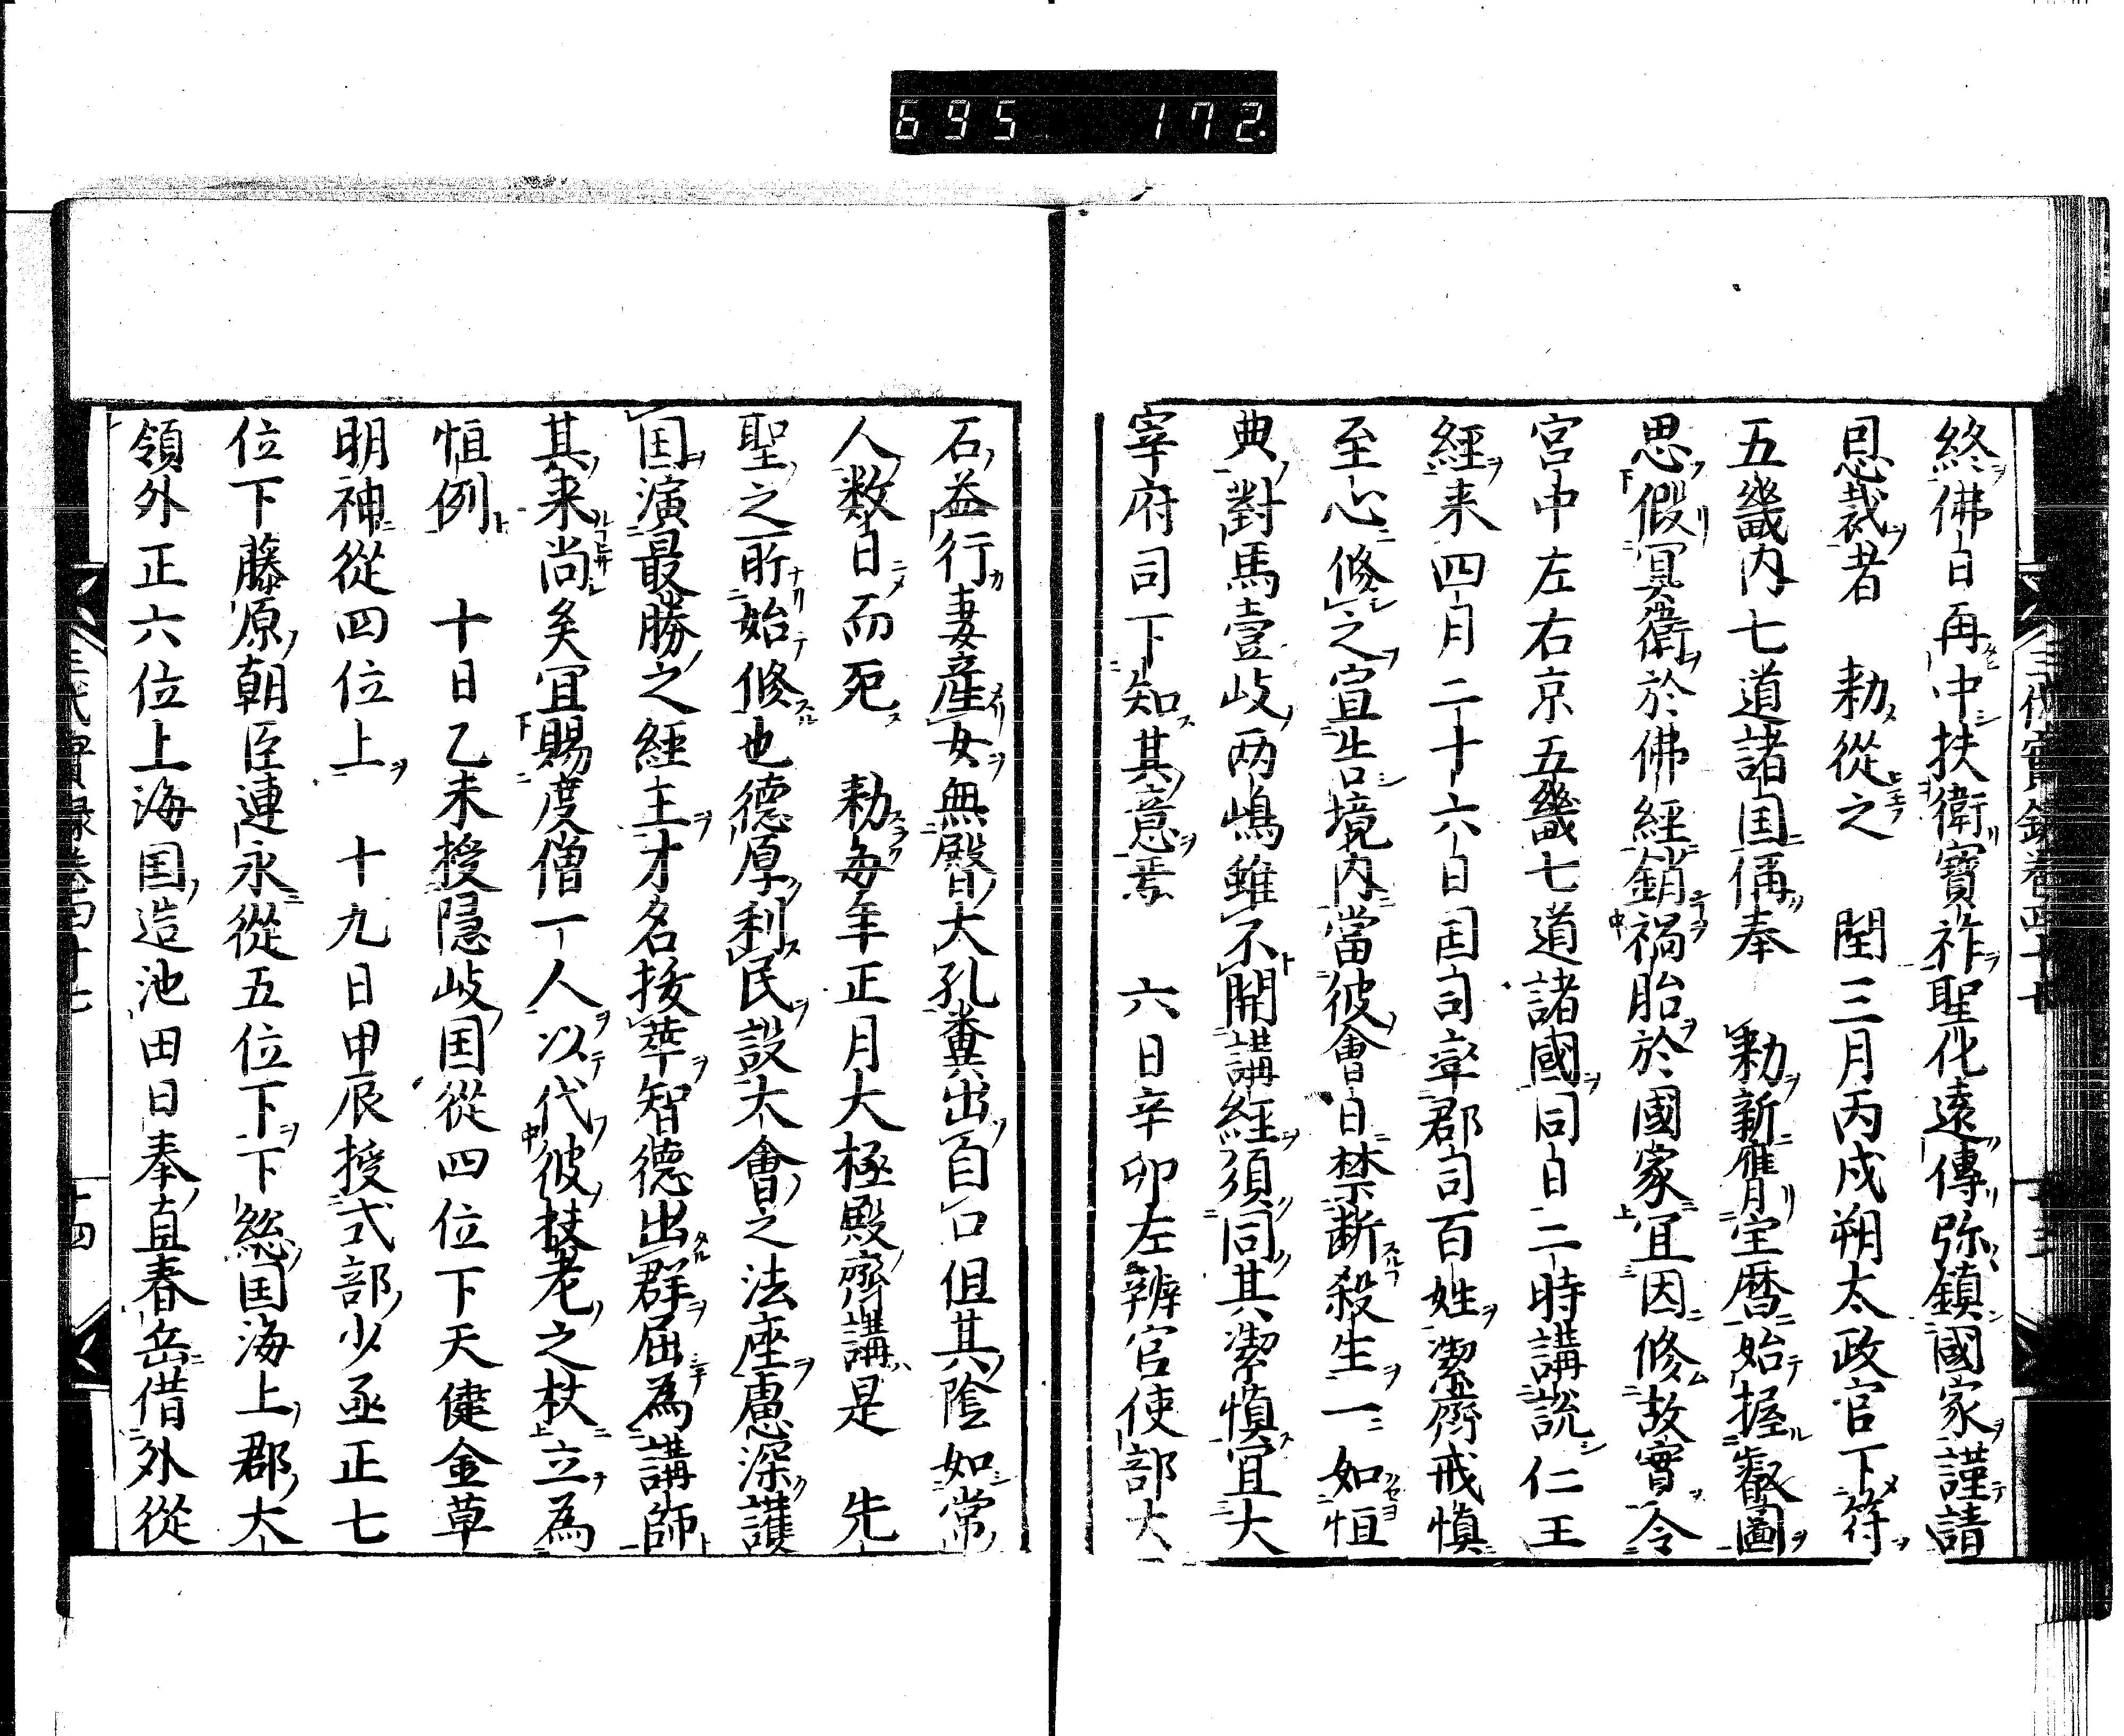 695 172
終佛日再中扶衛寶祚聖化遠傳弥鎮國家謹請
恩裁者 勅從之 閏三月丙戌朔太政官下符
五畿内七道諸国偁奉 勅新膺宝暦始握叡圖
思假冥衛於佛經銷禍胎於國家宜因修故實令
宮中左右京五畿七道諸國同日二時講説仁王
經来四月二十六日国司率郡司百姓潔齊戒慎
至心修之宣告境内當彼會日禁断殺生一如恒
典對馬壹岐两嶋雖不開講經須同其潔慎宜大
宰府司下知其意焉 六日辛卯左辨官使部大
石益行妻産女無臀大孔糞出自口但其陰如常
人数日而死 勅毎年正月大極殿齊講是 先
聖之所始修也德厚利民設大會之法座慮深護
国演最勝之經王才名接華智德出群屈為講師
其来尚矣宜賜度僧一人以代彼扶老之杖立為
恒例 十日乙未授隠岐国從四位下天健金草
明神從四位上 十九日甲辰授式部少丞正七
位下藤原朝臣連永從五位下下総国海上郡大
領外正六位上海上国造池田日奉直春岳借外從
三代實録卷四十七 十四